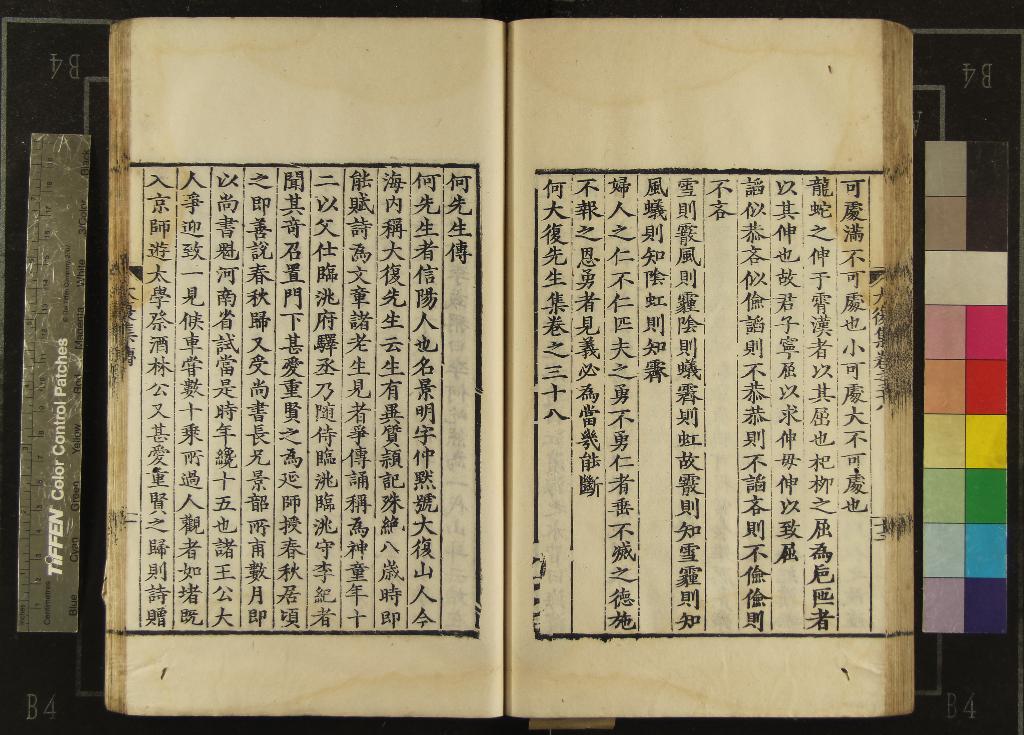 可處滿不可處也小可處大不可處也
龍蛇之伸于霄漢者以其屈也杞柳之屈為巵匜者
以其伸也故君子寧屈以求伸毋伸以致屈
謟似恭吝似儉謟則不恭恭則不謟吝則不儉儉則
不吝
雪則霰風則霾陰則蟻霽則虹故霰則知雪霾則知
風蟻則知陰虹則知霽
婦人之仁不仁匹夫之勇不勇仁者垂不滅之德施
不報之恩勇者見義必為當幾能斷
何大復先生集卷之三十八
何先生傳
何先生者信陽人也名景明字仲黙號大復山人今
海内稱大復先生云生有異質頴記殊絶八歳時即
能賦詩為文章諸老生見者爭傳誦稱為神童年十
二以父仕臨洮府驛丞乃随侍臨洮臨洮守李紀者
聞其奇召置門下甚愛重賢之為延師授春秋居頃
之即善說春秋歸又受尚書長兄景韶所甫數月即
以尚書魁河南省試當是時年纔十五也諸王公大
人爭迎致一見候車嘗數十乘所過人觀者如堵既
入京師遊太學祭酒林公又甚愛重賢之歸則詩贈
TIFFEN Color Control Patches
Blue
Cyan
Green
Yellow
Red
Magenta
White
3/Color
Black
Centimetres
Inches
B4
B4
B4
B4